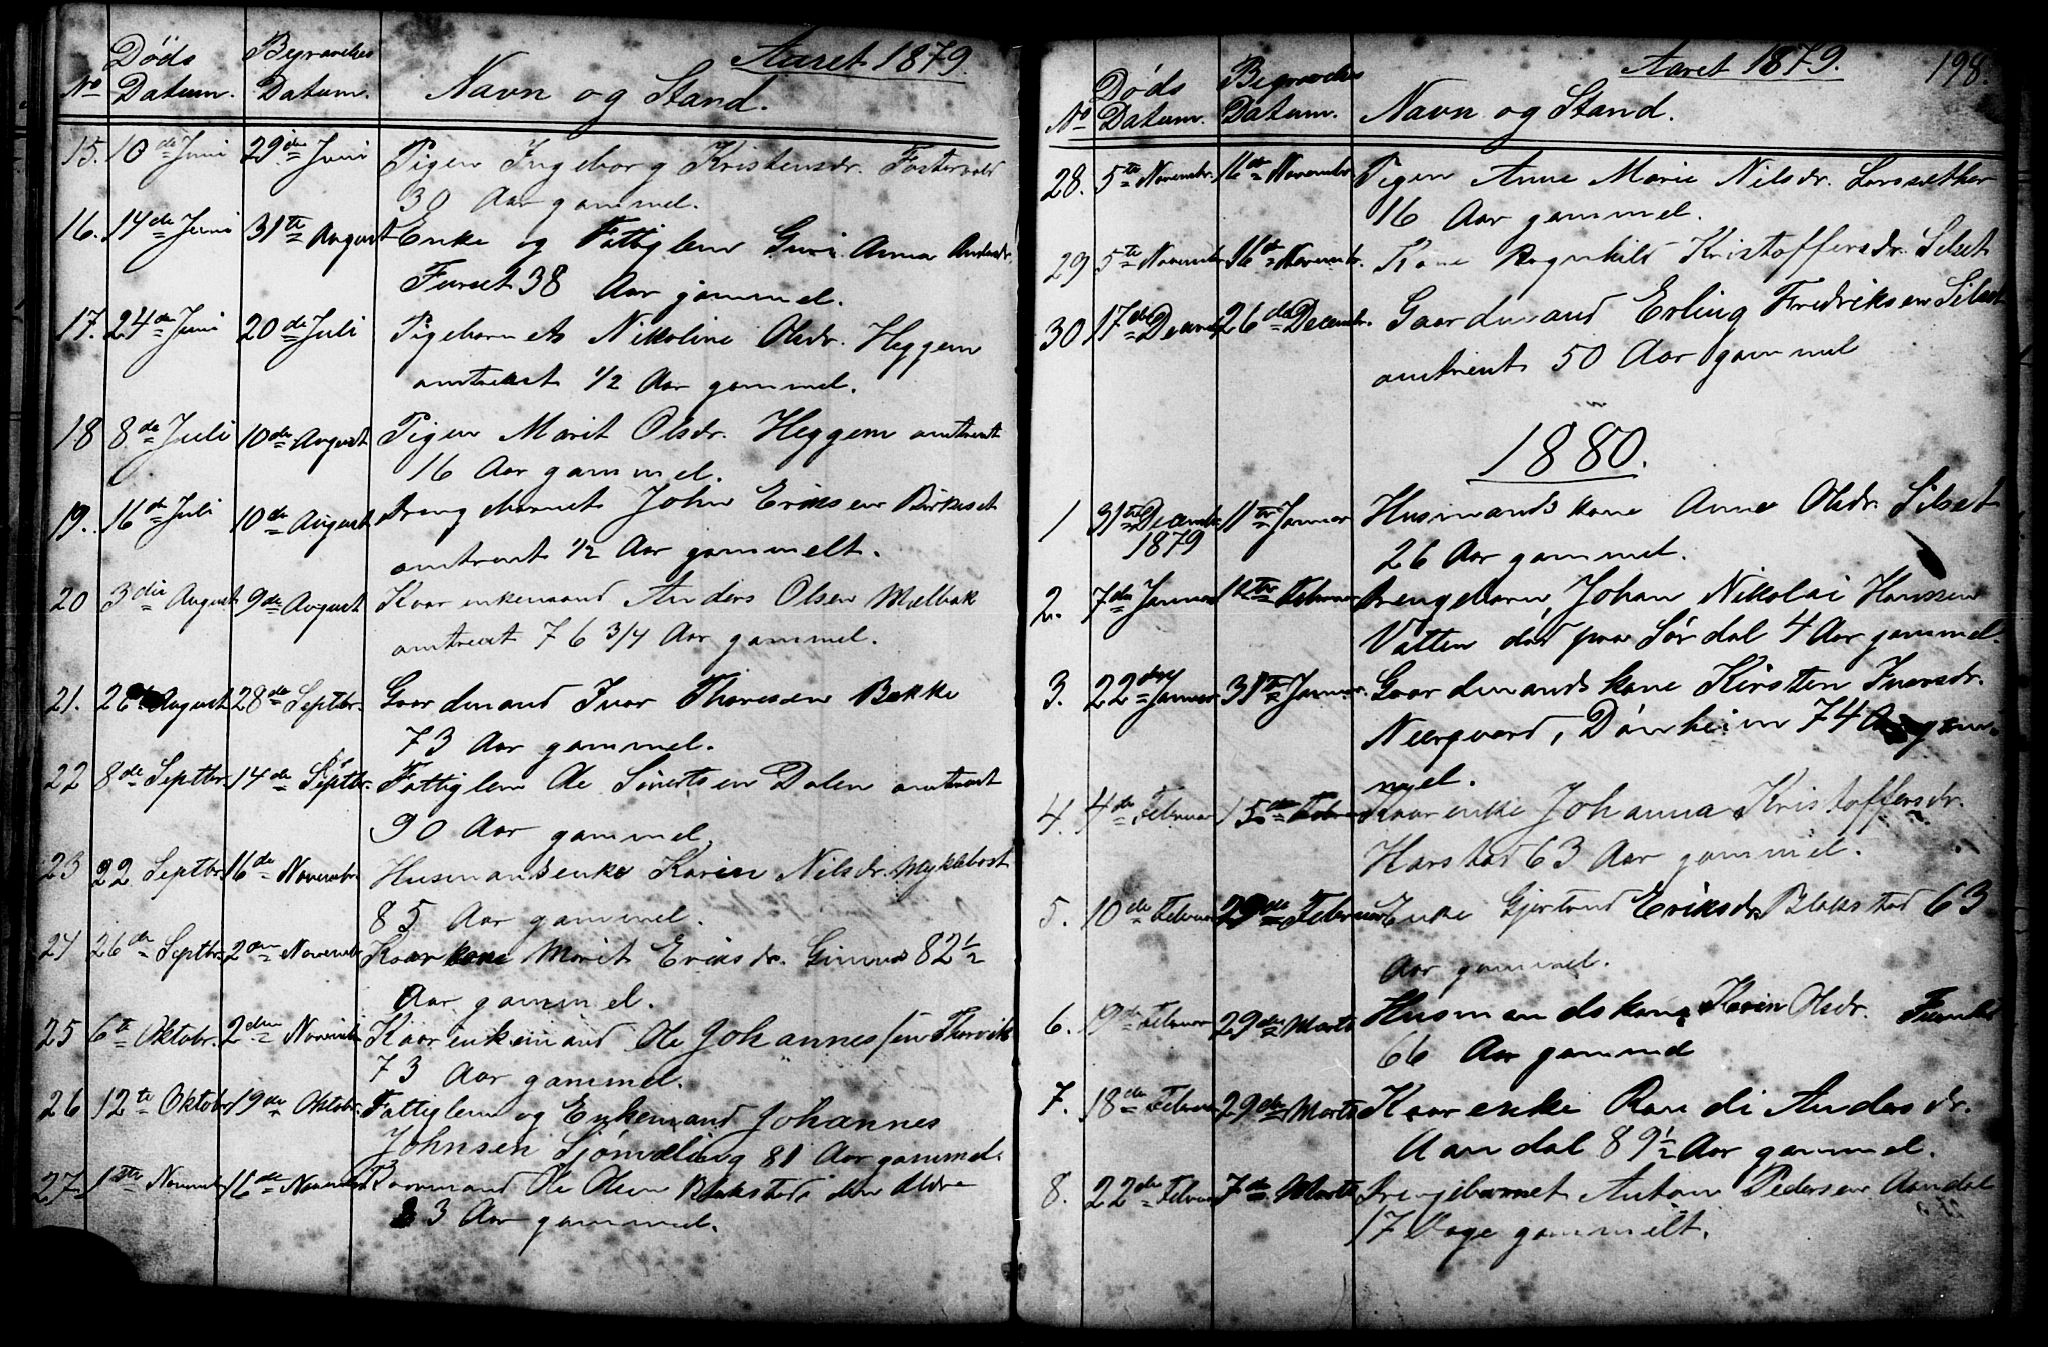 Aaret 1879.
No Døds Datum. Begravelses Datum. Navn og Stand.
15. 10de Juni 29de Juni Pigen Ingeborg Kristensdr.
30 Aar gammel.
16. 14de Juni 31te August Enke og Fattiglem Guri Anna
Furset 38 Aar gammel.
17. 24de Juni 20de Juli Pigebarnet Nikoline Olsdr. Heggem
omtrent 1/2 Aar gammel.
18 8de Juli 10de August Pigen Marit Olsdr. Heggem omtrent
16 Aar gammel.
19. 16de Juli 10de August Drengebarnet John Eriksen Birkeset
omtrent 1/2 Aar gammelt.
20 3die August 9de August Kaarenkemand Anders Olsen Mælbak
omtrent 76 3/4 Aar gammel.
21. August 28de Septbr. Gaardmand Ivar Thoresen Bakke
73 Aar gammel.
22 8de Septbr. 14de Septbr. Fattiglem Ole Sivertsen Dalen omtrent
90 Aar gammel.
23 22 Septbr. 16de Novembr. Husmandsenke Karen Nilsdr. Myklebost
85 Aar gammel.
24 26de Septbr. 2den Novembr Kaarkone Marit Eriksdr. 82 1/2
Aar gammel.
25 6te Oktobr. 2den Novembr Kaarenkemand Ole Johannessen Thorvik
73 Aar gammel.
26 12te Oktobr 19de Oktobr. Fattiglem og Enkemand Johannes
Johnsen Sjømæling 81 Aar gammel.
27 1ste Novembr 16de Novembr Kaarmand Ole Olsen Blakstad den Ældre
83 Aar gammel.
Aaret 1879. 198.
No Døds Datum. Begravelses Datum. Navn og Stand.
28. 5te Novembr. 16de Novembr Pigen Anne Marie Nilsdr. Larssæther
16 Aar gammel.
29 5te Novembr 16de Novembr. Kone Ragnhild Kristoffersdr. Silset
30 17de Decembr 26de Decembr. Gaardmand Erling Fredriksen Silset
omtrent 50 Aar gammel
1880.
1 31te Decembr 1879 11te Januar Husmandskone Anne Olsdr. Silset
26 Aar gammel.
2. 7de Januar Februar Drengebarn, Johan Nikolai Hanssen
Vatten død paa Sørdal 4 Aar gammel.
3. 22de Januar 31te Januar. Gaardmandskone Kirsten Iversdr.
Neergaard, 74 Aar gam-
mel.
4. 4de Februar 15de Februar Kaarenke Johanna Kristoffersdr.
Harstad 63 Aar gammel.
5. 10de Februar 29de Februar Enke Gjertrud Eriksdr. Blakstad 63
Aar gammel.
6. 19de Februar 29de Marts Husmandskone Karen Olsdr.
66 Aar gammel
7. 18de Februar 29de Marts Kaarenke Randi Andersdr.
Aandal 89 1/2 Aar gammel.
8. 22de Februar 7de Marts Drengebarnet Anton Pedersen Aandal
17 Dage gammelt.